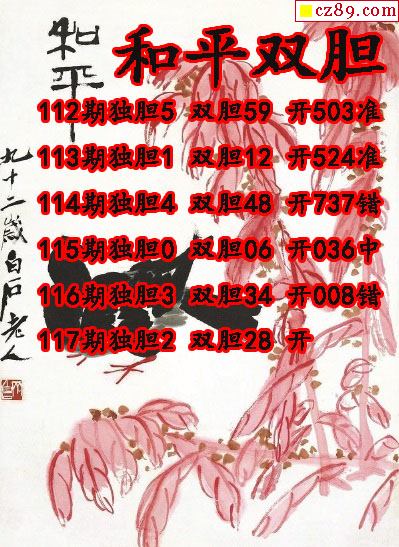 cz89.com
和平双胆
112期独胆5 双胆59 开503准
113期独胆1 双胆12 开524准
114期独胆4 双胆48 开737错
115期独胆0 双胆06 开036中
116期独胆3 双胆34 开008错
117期独胆2 双胆28 开
和平
九十二岁白石老人